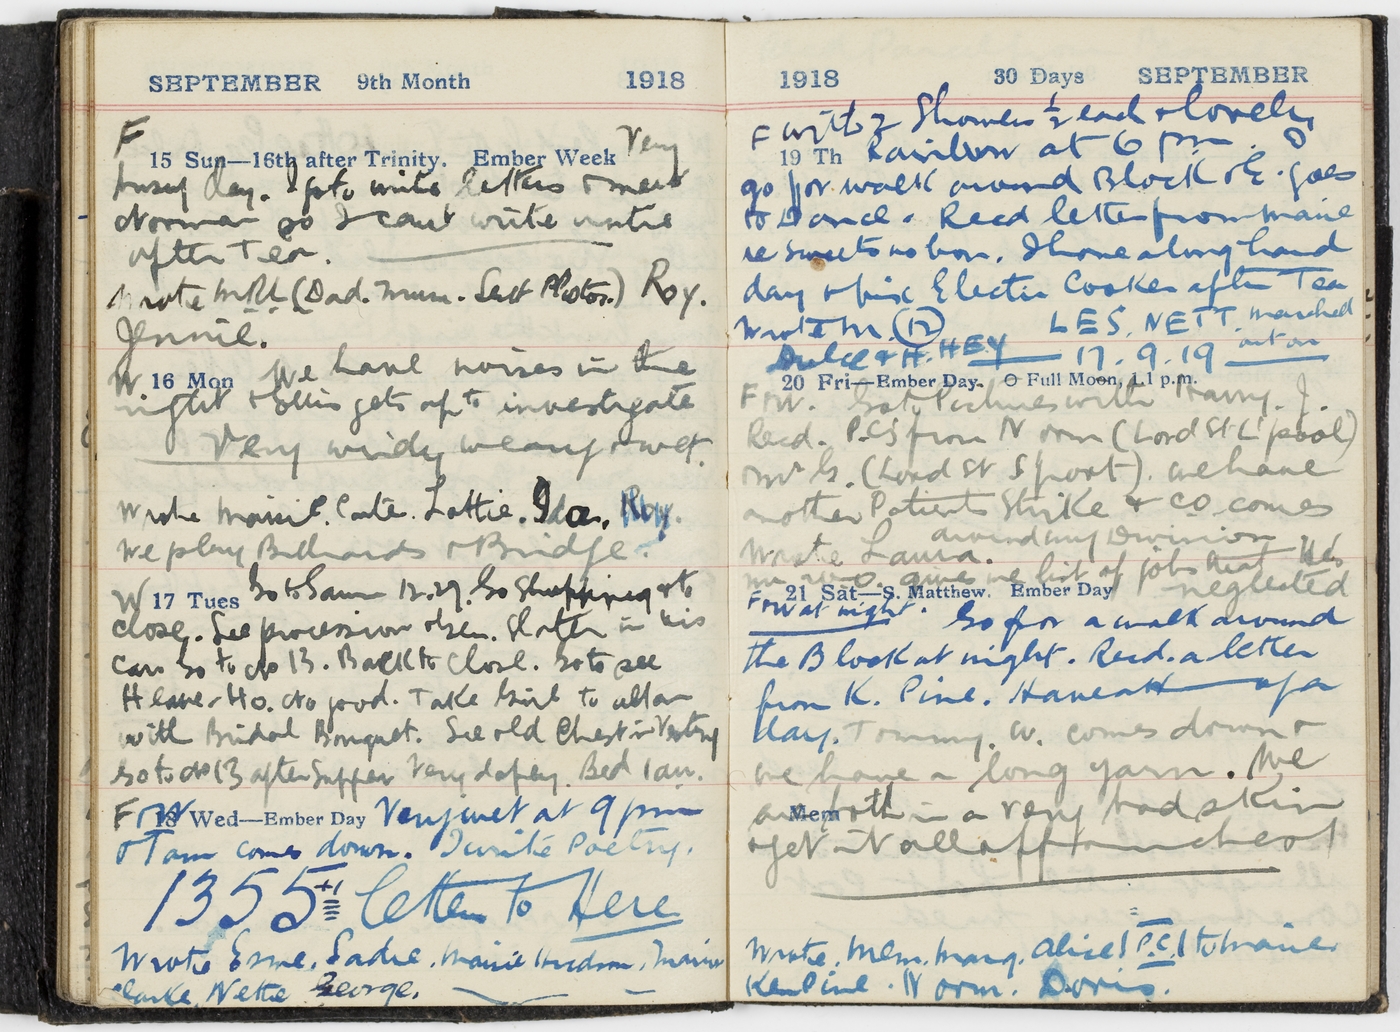 SEPTEMBER 9th Month 1918
F
15 Sun—16th after Trinity. Ember Week Very
busy day. I go to write letters & meet
Norman so I cant write until
after Tea.
Wrote (Dad. Mum. Photos.) Roy.
Jennie.
W 16 Mon We have noises in the
night & Ellis gets up to investigate
Very windy weary & wet.
Wrote Maisie. Lottie. Ida. Roy.
We play Billiards & Bridge.
W 17 Tues Go to 12.29. Go Shopping & to
close. See procession & in his
car Go to No 13. Back to Close. Go to see
Heave-Ho. No good. Take Girl to altar
with Bridal Bouquet. See old Chest in Vestry
Go to No 13 after Supper Very dopey. Bed 1 am.
F & W
18 Wed—Ember Day Very wet at 9 pm
& Tam comes down. I write Poetry.
1355 +1 letters to Here
Wrote Esme. Sadie. Maisie Hudson.
Clarke. Nettie George.
1918 30 Days SEPTEMBER
F with 2 Showers ½ each & lovely
19 Th Rainbow at 6 pm.
go for walk around Block & E. goes
to Dance. Recd letter from Maisie
re sweets no bon. I have a long hard
day & fix Electric Cooker after Tea
Wrote M. (12) LES. NETT. marched
Dulce & H. HEY — 17.9.19 out on
20 Fri—Ember Day. O Full Moon, 1.1 p.m.
F & W. Go to Pictures with Harry. J.
Recd. P.CS from Norm (Lord St L'pool)
& Mr G. (Lord St S'port). We have
another Patients Strike & CO comes
around my Division
Wrote Laura.
gives me list of jobs that
neglected
21 Sat—S. Matthew. Ember Day
F & W at night. Go for a walk around
the Block at night. Recd. a letter
from K. Pine. Have a H— of a
day. Tommy. W. comes down &
we have a long yarn. We
Mem
are both in a very bad skin
& get it all off our chest
Wrote. Mem. Marg. Alice (P.C.) to Maisie
Ken Pine. Norm. Doris.